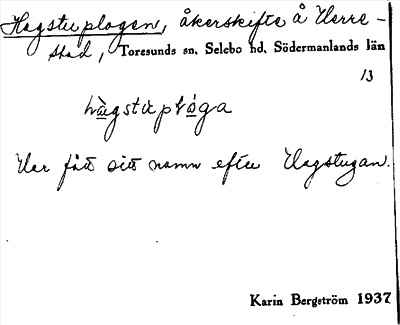 Hagstuplogen, åkerskifte å Herre-
stad, Toresunds sn, Selebo hd, Södermanlands län
13
hàgstuplóga
Har fått sitt namn efter Hagstugan.
Karin Bergström 1937